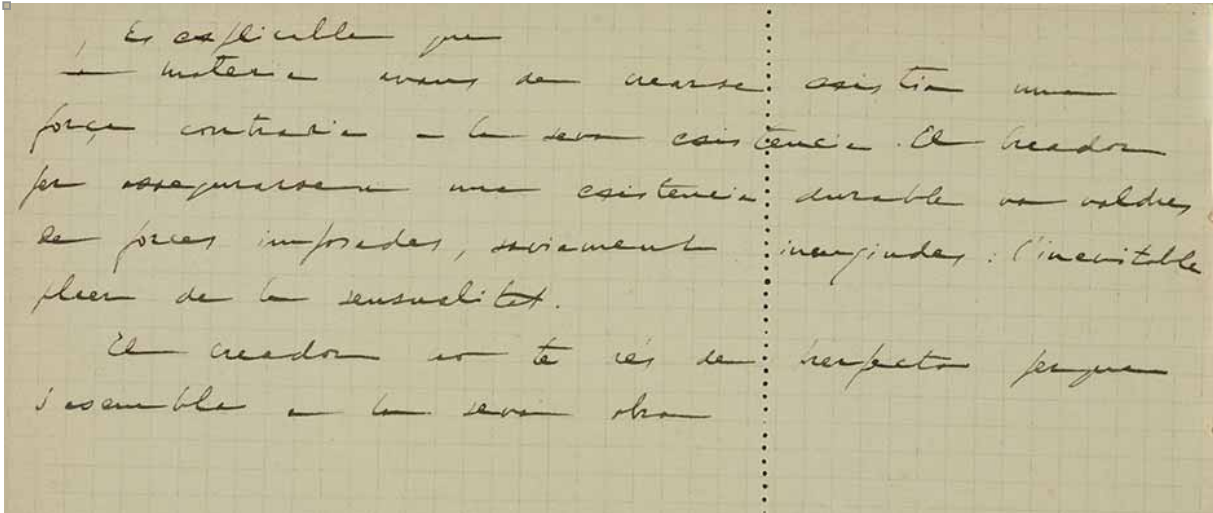 Es explicable que
la materia avans de crearse existia una
força contraria a la seva existencia. El Creador
per assegurarsen una existencia durable va valdres
de forces imposades, saviament inengindes : l'inevitable
pleer de la sensualitat.
El creador no te rés de perfecta perque
s'asembla a la seva obra